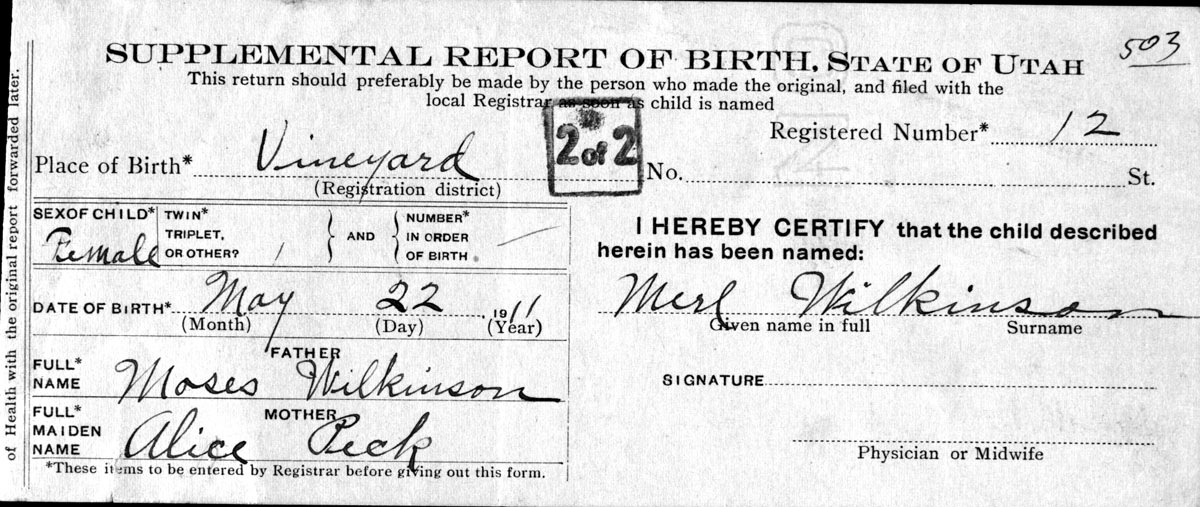 503
SUPPLEMENTAL REPORT OF BIRTH, STATE OF UTAH
This return should preferably be made by the person who made the original, and filed with the
local Registrar as soon as child is named
2 of 2
Registered Number* 12
Place of Birth* Vineyard No. St.
(Registration district)
SEX OF CHILD* Female
TWIN* TRIPLET, OR OTHER? / } { AND } { NUMBER* IN ORDER OF BIRTH —
DATE OF BIRTH* May 22, 1911
(Month) (Day) (Year)
FATHER
FULL* NAME Moses Wilkinson
MOTHER
FULL* MAIDEN NAME Alice Peck
*These items to be entered by Registrar before giving out this form.
I HEREBY CERTIFY that the child described
herein has been named:
Merl Wilkinson
Given name in full Surname
SIGNATURE
Physician or Midwife
of Health with the original report forwarded later.